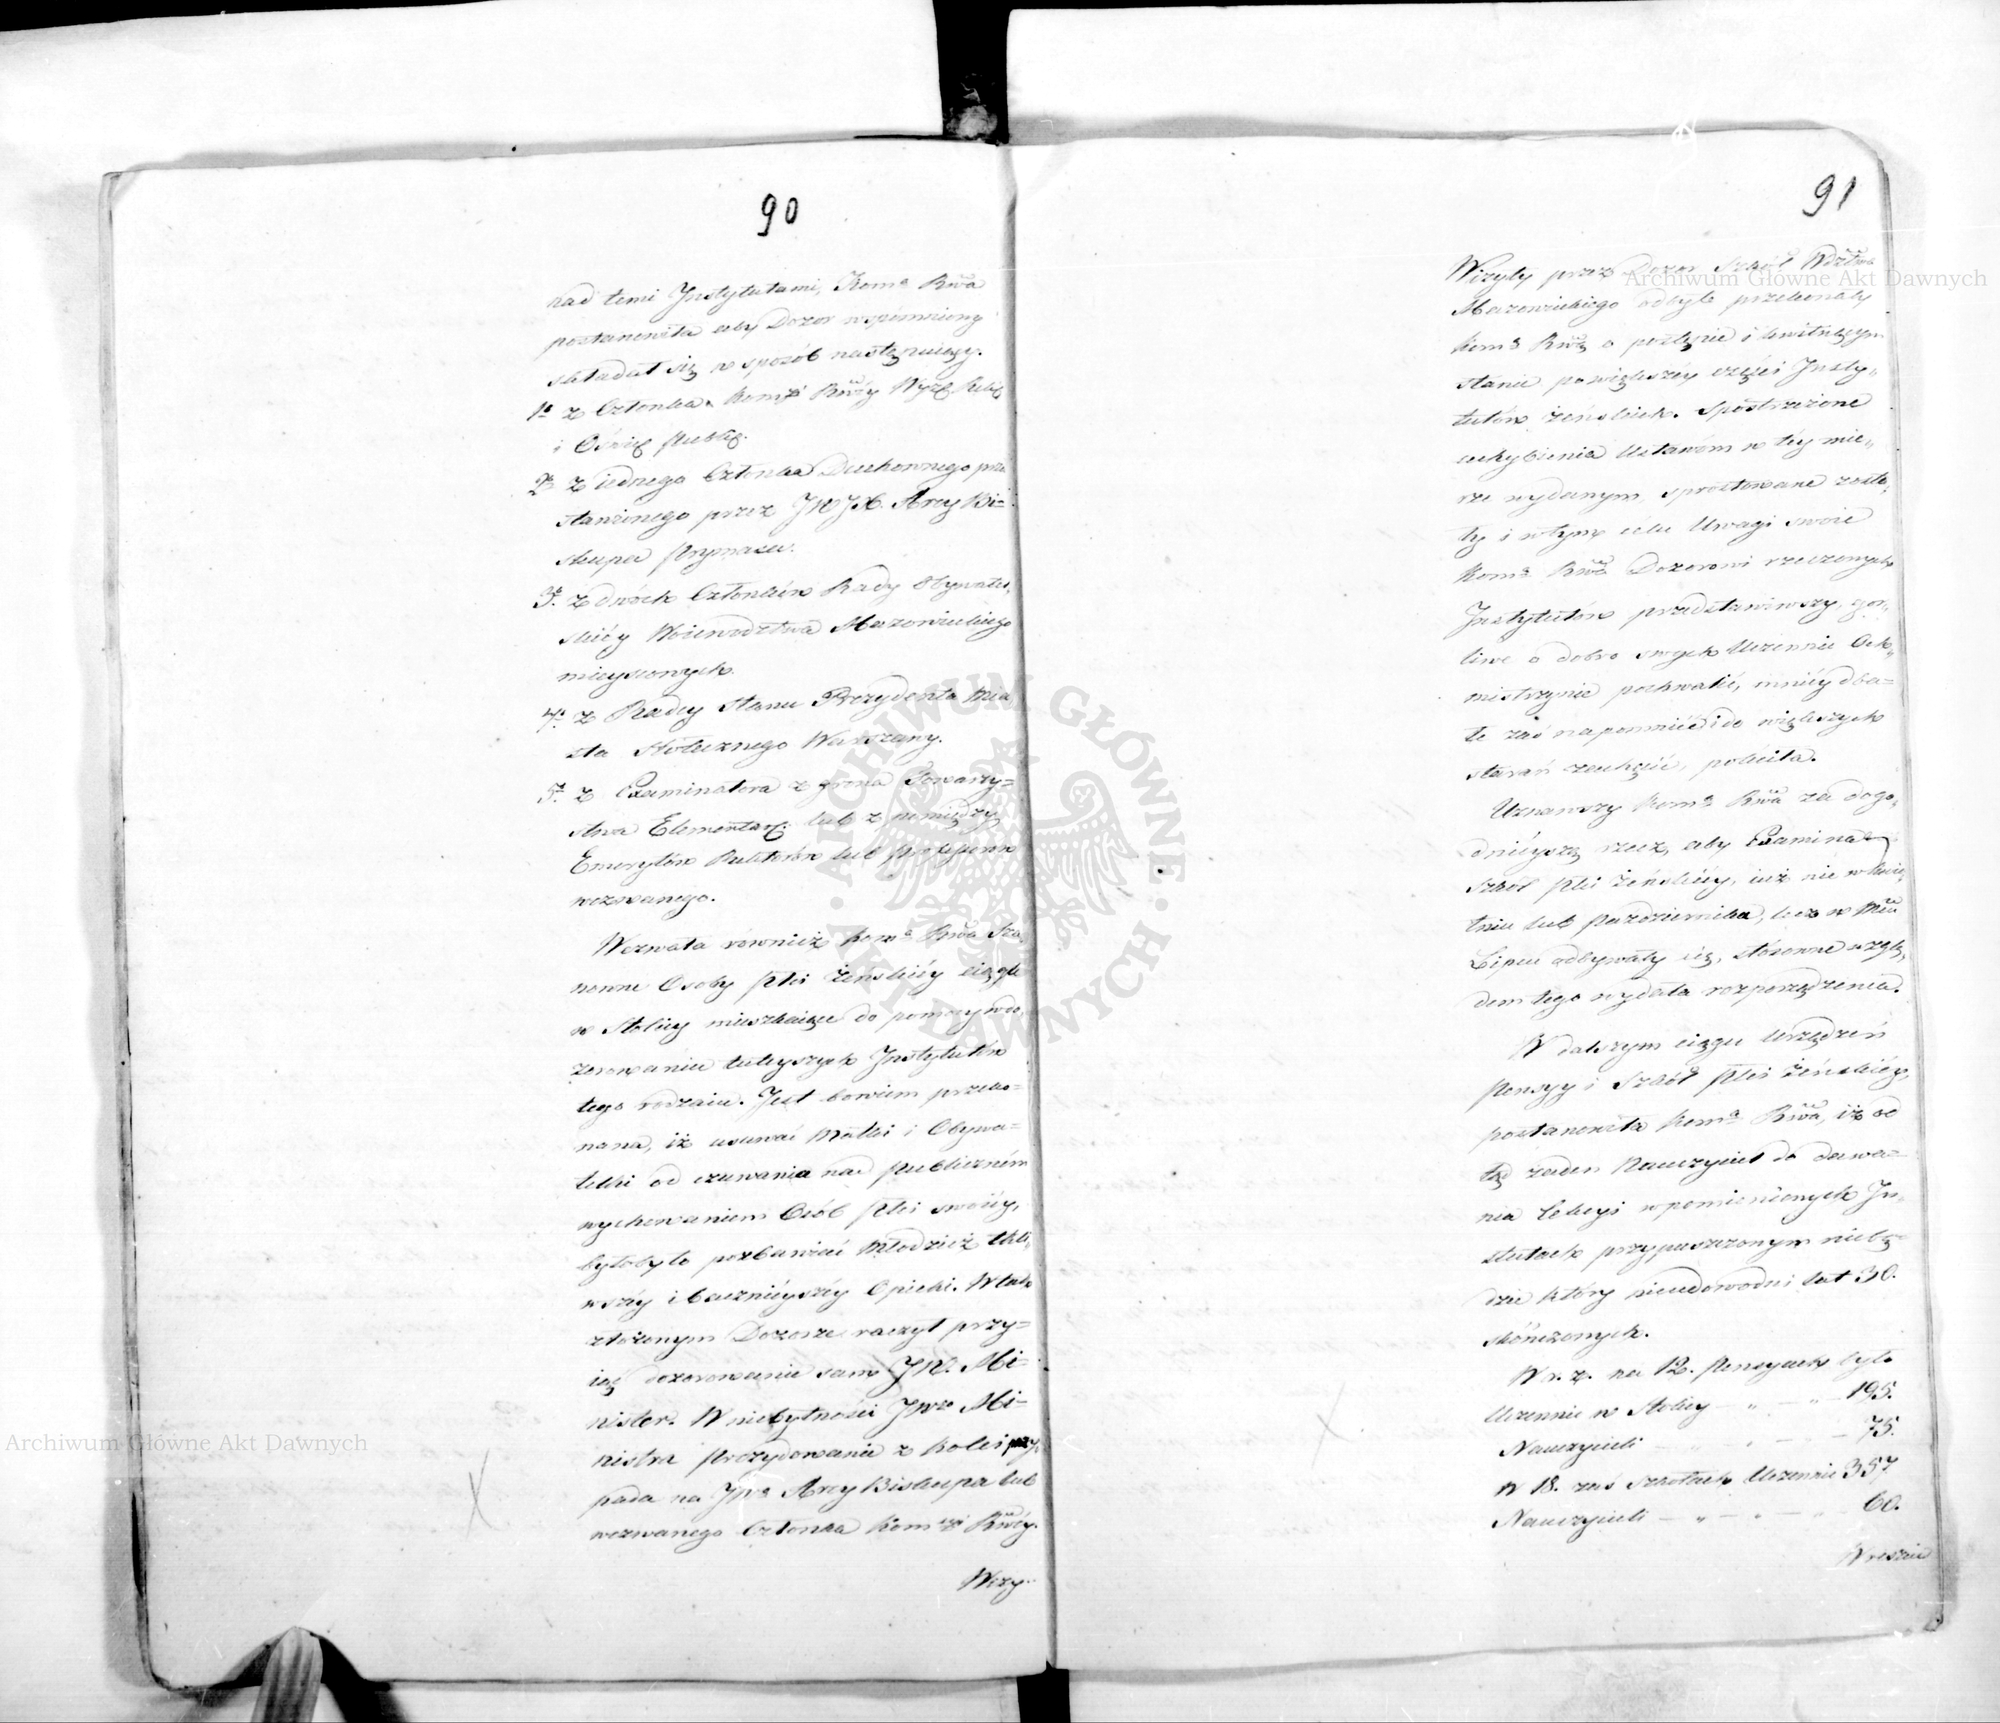 90
nad temi Instytutami, Kom̃a Rwa
postanowiła aby Dozor wspomniony
składał się w sposób następuiący.
1o z Członka Kommi Rwéy Wyz. Relig
i Oświe. Publie.
2o z iednego Członka Duchownego prze
stawionego przez JWJX. Arcy Bi=
skupa Prymasa.
3o z dwóch Członków Rady Obywatel=
skiéy Woiewodztwa Mazowieckiego
mieyscowych.
4o z Radcy Stanu Prezydenta Mia
sta Stołecznego Warszawy.
5o z Examinatora z grona Towarzy=
stwa Elementar. lub z pomiędzy
Emerytów Rektorów lub Professorów
wezwanego.
Wezwała również Koma Rwa Sza
nowne Osoby Płci Żeńskiéy ciągle
w Stolicy mieszkaiące do pomocy w do=
zorowaniu tuteyszych Instytutów
tego rodzaiu. Jest bowiem przeko=
nana, iż usuwać Matki i Obywa=
telki od czuwania nad publiczném
wychowaniem Osób Płci swoiéy,
byłoby to pozbawiać Młodzież tkli=
wszéy i bacznieyszéy Opieki. W tak
złożonym Dozorze raczył przy=
iąć dozorowanie sam JW. Mi=
nister. W niebytności JWgo Mi=
nistra Prezydowanie z kolei przy=
pada na JWa Arcy Biskupa lub
wezwanego Członka Kommi Rwéy.
Wizy-
91
Wizyty przez Dozor Szkół Wdztwa
Mazowieckiego odbyte przekonały
Koma Rwą o postępie i kwitnącym
stanie powiększey części Insty=
tutów żeńskich. Spostrzeżone
uchybienia Ustawom w téy mie=
rze wydanym sprostowane zosta=
ły i w tym celu Uwagi swoie
Koma Rwa Dozorowi rzeczonych
Instytutów przedstawiwszy, gor=
liwe o dobro swych Uczennic Och=
mistrzynie pochwalić, mniéy dba=
łe zaś napomniéć i do większych
starań zachęcić, poleciła.
Uznawszy Koma Rwa za dogo=
dnieyszą rzecz, aby Examina
Szkół Płci Żeńskiéy, iuż nie w Kwie=
tniu lub Październiku, lecz w Mcu
Lipcu odbywały się, stosowne wzglę=
dem tego wydała rozporządzenia.
W dalszym ciągu Urządzeń
Pensyy i Szkół Płci Żeńskiéy,
postanowiła Koma Rwa, iż od
tąd żaden Nauczyciel do dawa=
nia Lekcyi wpomienionych In=
stutach przypuszczonym niebę=
dzie który nieudowodni lat 30.
skończonych.
W r. z. na 12. Pensyach było
Uczennic w Stolicy — „ — „ — 195.
Nauczycieli — „ — — 75.
W 18. zaś Szkołach Uczennic 357
Nauczycieli — „ — „ — „ — 60.
Wreszcie
Archiwum Główne Akt Dawnych
Archiwum Główne Akt Dawnych
ARCHIWUM GŁÓWNE AKT DAWNYCH